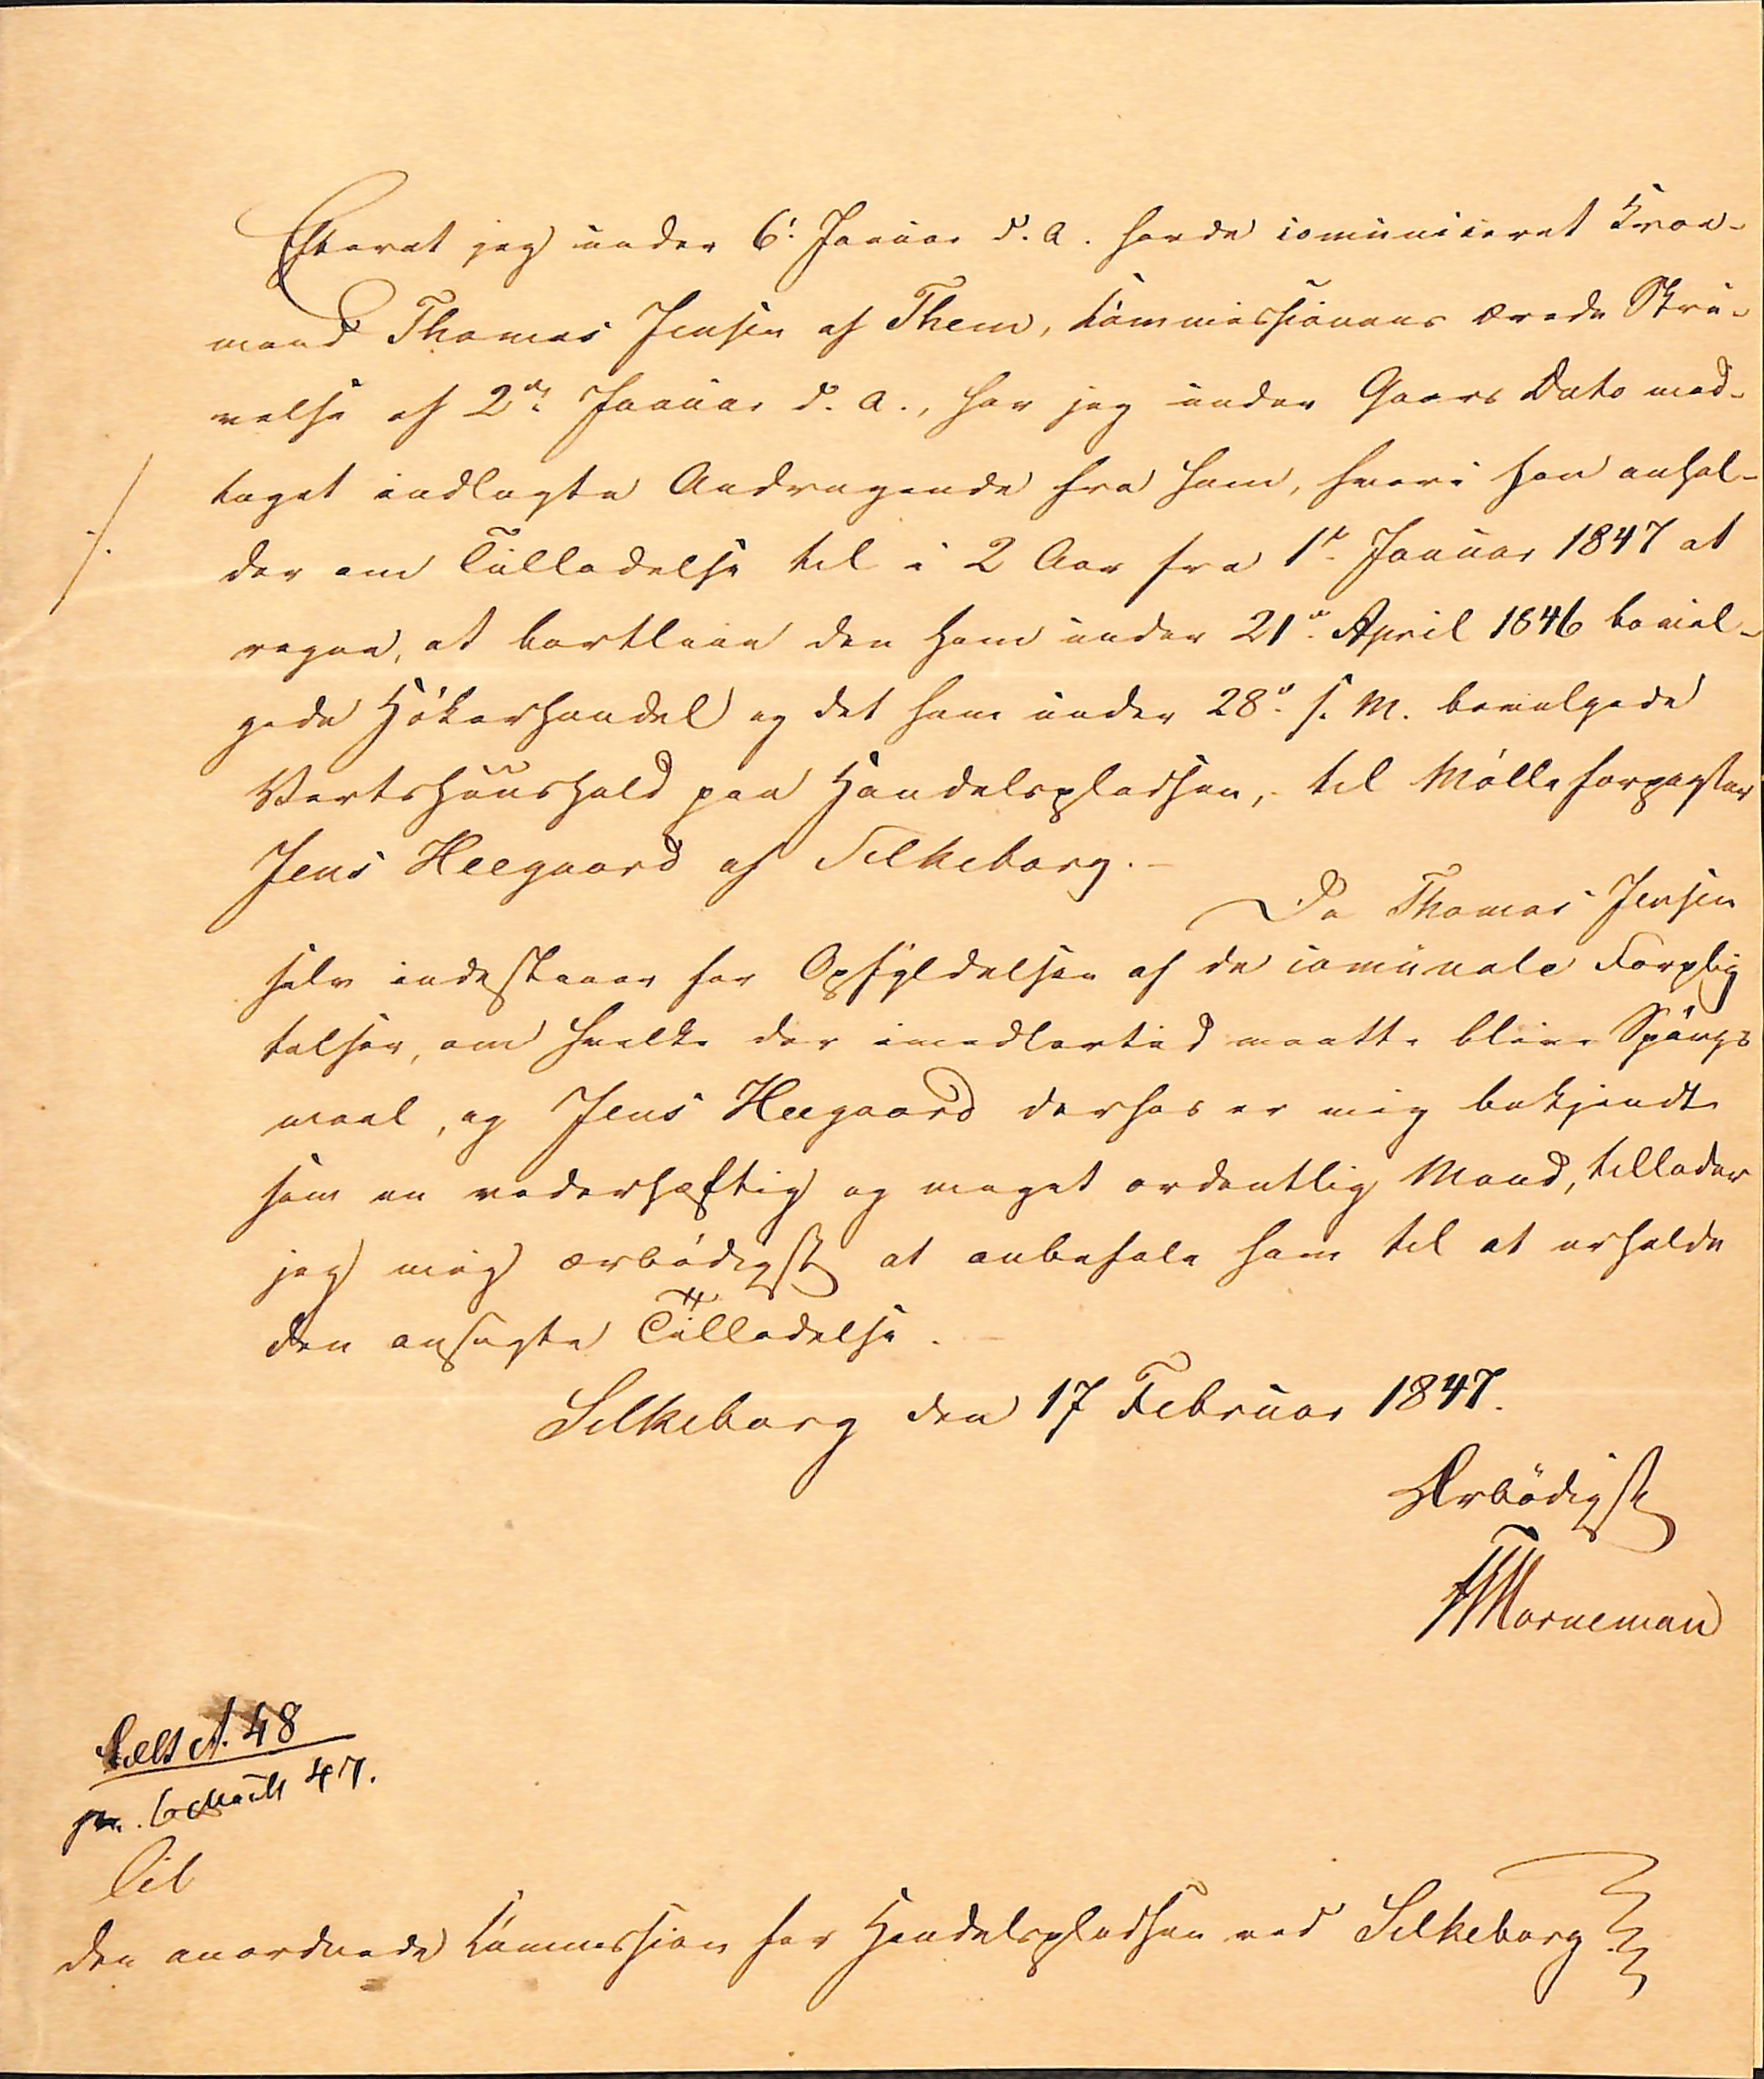 Efterat jeg under 6' Januar d. A. havde comuniceret Kroe-
mand Thomas Jensen af Them, Kommissionens ærede Skri-
velse af 2den Januar d. A., har jeg under Gaars Dato mod-
taget indlagte Andragende fra ham, hvori han anhol-
./.
der om Tilladelse til i 2 Aar fra 1ste Januar 1847 at
regne, at bortleie den ham under 21de April 1846 bevil-
gede Høkerhandel og det ham under 28de s. M. bevilgede
Vertshuushold paa Handelspladsen, til Mølleforpagter
Jens Heegaard af Silkeborg.-
Da Thomas Jensen
selv indestaaer for Opfyldelsen af de comunale Forplig
telser, om hvilke der imidlertid maatte blive Spørgs
maal, og Jens Heegaard derhos er mig bekjendt
som en vederhæftig og meget ordentlig Mand, tillader
jeg mig ærbødigst at anbefale ham til at erholde
den ansøgte Tilladelse.
Silkeborg den 17 Februar 1847.
Ærbødigst
Horneman
48
47.
Til
den anordnede Kommission for Handelspladsen ved Silkeborg